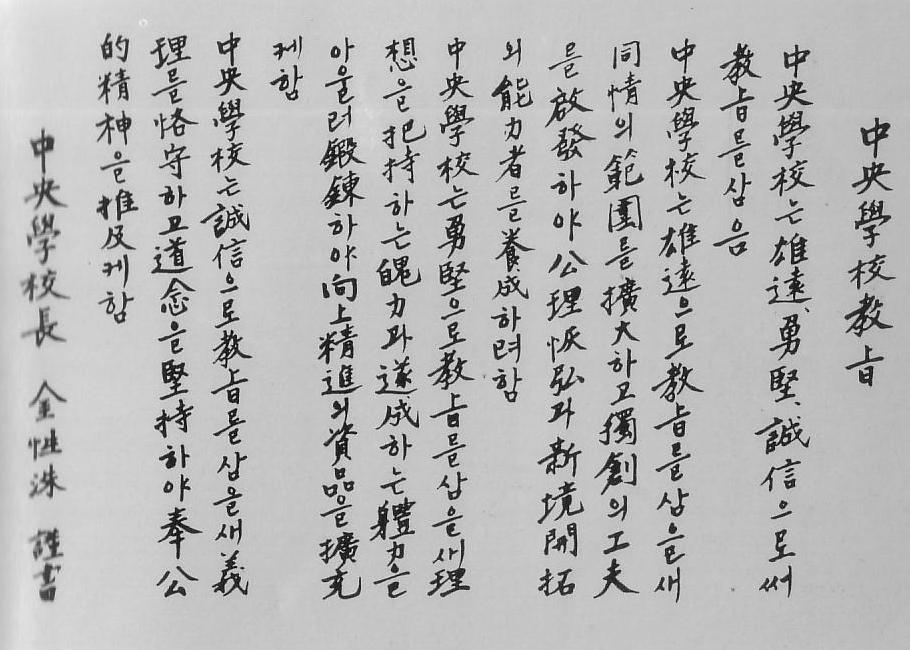 中央學校教旨
中央學校는雄遠、勇堅、誠信으로써
教旨를삼음
中央學校는雄遠으로教旨를삼을새
同情의範圍를擴大하고獨創의工夫
를啟發하야公理恢弘과新境開拓
의能力者를養成하려함
中央學校는勇堅으로教旨를삼을새理
想을把持하는魄力과遂成하는軆力을
아울러鍛鍊하야向上精進의資品을擴充
케함
中央學校는誠信으로教旨를삼을새義
理를恪守하고道念을堅持하야奉公
的精神을推及케함
中央學校長 金性洙 謹書